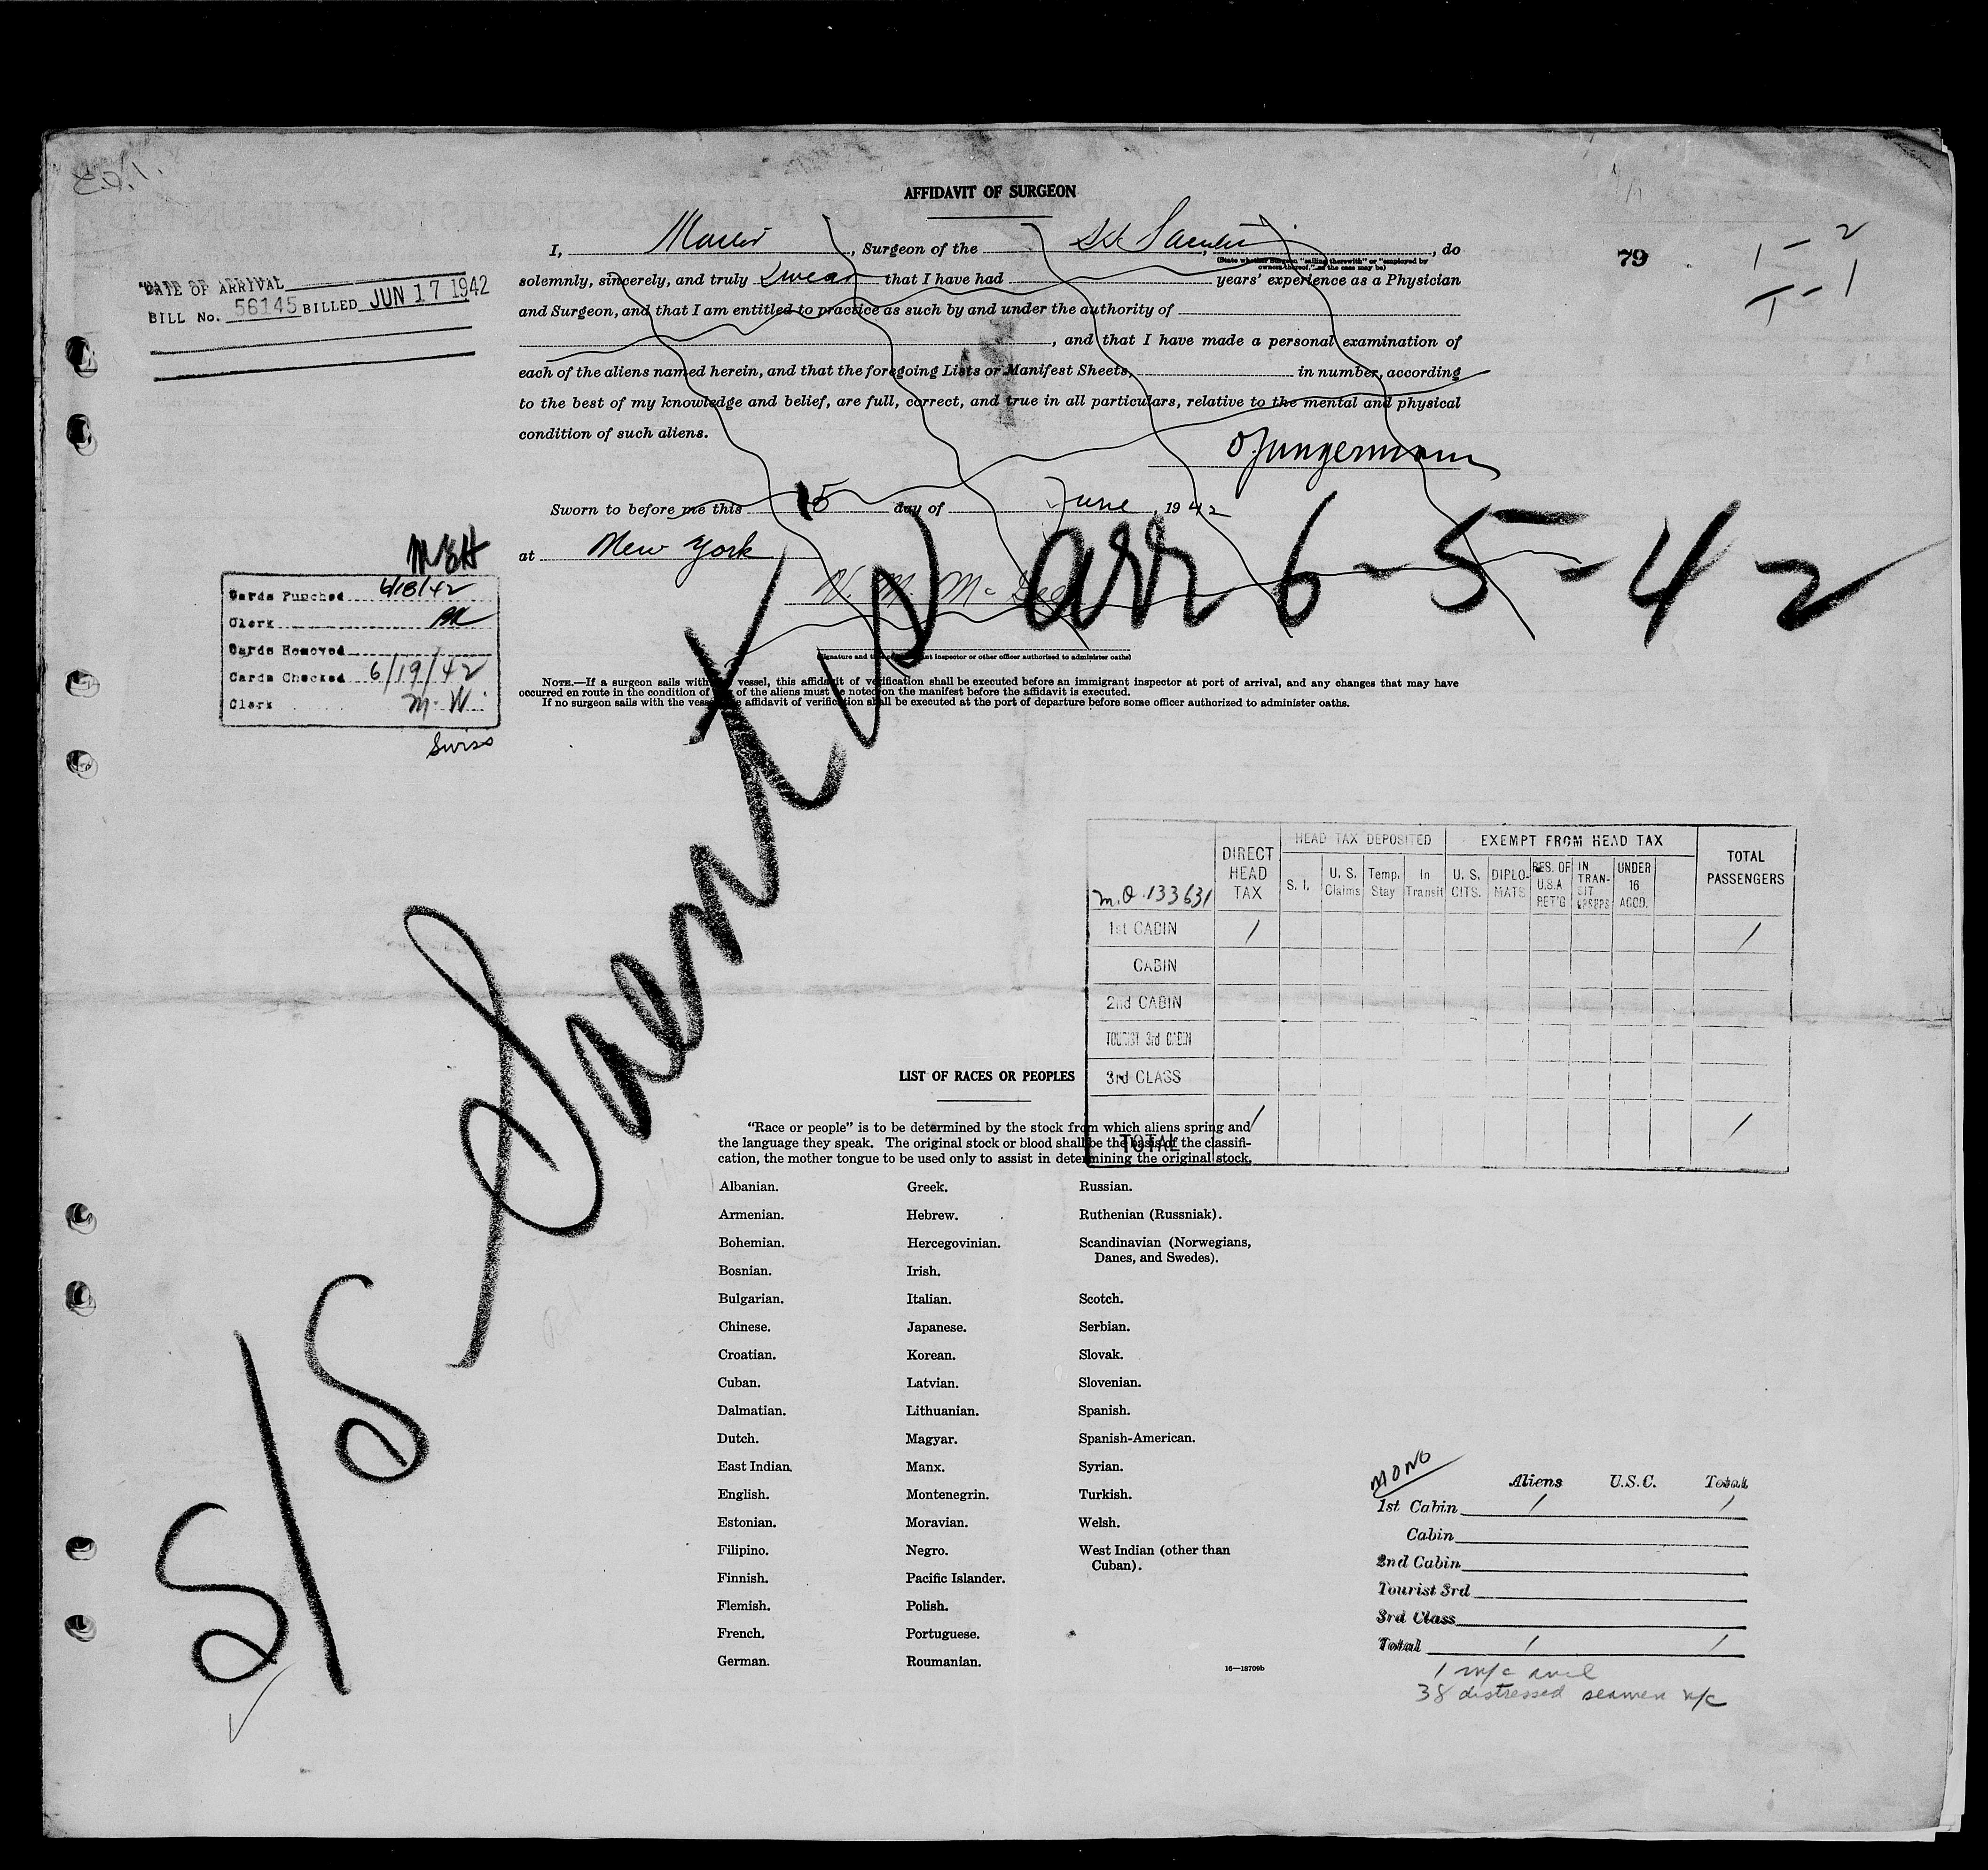 AFFIDAVIT OF SURGEON
I, Master, Surgeon of the
(State whether Surgeon "sailing therewith" or "employed by
owners thereof," as the case may be)
, do
solemnly, sincerely, and truly swear that I have had years' experience as a Physician
and Surgeon, and that I am entitled to practice as such by and under the authority of
, and that I have made a personal examination of
each of the aliens named herein, and that the foregoing Lists or Manifest Sheets, in number, according
to the best of my knowledge and belief, are full, correct, and true in all particulars, relative to the mental and physical
condition of such aliens.
O Jungermann
Sworn to before me this 15 day of June, 1942
at New York
79
1 - 2
1 - 1
DATE OF ARRIVAL
BILL No. 56145 BILLED JUN 17 1942
arr 6-5-42
(Signature and immigrant inspector or other officer authorized to administer oaths)
NOTE.—If a surgeon sails with vessel, this affidavit of verification shall be executed before an immigrant inspector at port of arrival, and any changes that may have
occurred en route in the condition of of the aliens must be noted on the manifest before the affidavit is executed.
If no surgeon sails with the vessel affidavit of verification shall be executed at the port of departure before some officer authorized to administer oaths.
Cards Punched 6/18/42
Clerk
Cards Removed
Cards Checked 6/19/42
Clerk M. W.
Swiss
S/S
m.o. 133631
DIRECT HEAD TAX
HEAD TAX DEPOSITED
EXEMPT FROM HEAD TAX
TOTAL PASSENGERS
S. I. U. S. Claims Temp. Stay In Transit U. S. CITS. DIPLO-MATS RES. OF U.S.A RET'G IN TRAN-SIT UNDER 16 ACCD.
1st CABIN 1 1
CABIN
2nd CABIN
TOURIST 3rd CABIN
3rd CLASS
TOTAL 1 1
LIST OF RACES OR PEOPLES
"Race or people" is to be determined by the stock from which aliens spring and
the language they speak. The original stock or blood shall be the basis of the classifi-
cation, the mother tongue to be used only to assist in determining the original stock.
Albanian. Greek. Russian.
Armenian. Hebrew. Ruthenian (Russniak).
Bohemian. Hercegovinian. Scandinavian (Norwegians,
Danes, and Swedes).
Bosnian. Irish.
Bulgarian. Italian. Scotch.
Chinese. Japanese. Serbian.
Croatian. Korean. Slovak.
Cuban. Latvian. Slovenian.
Dalmatian. Lithuanian. Spanish.
Dutch. Magyar. Spanish-American.
East Indian. Manx. Syrian.
English. Montenegrin. Turkish.
Estonian. Moravian. Welsh.
Filipino. Negro. West Indian (other than
Cuban).
Finnish. Pacific Islander.
Flemish. Polish.
French. Portuguese.
German. Roumanian.
16—18709b
MONO
Aliens U.S.C. Total
1st Cabin 1 1
Cabin
2nd Cabin
Tourist 3rd
3rd Class
Total 1 1
38 distressed seamen